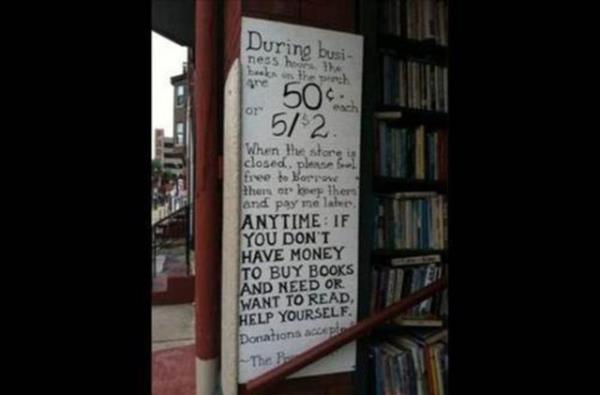 During busi-
ness hours, the
books on the porch
are 50¢ each
or 5/$2.
When the store is
closed, please feel
free to Borrow
them or keep them
and pay me later.
ANYTIME: IF
YOU DON'T
HAVE MONEY
TO BUY BOOKS
AND NEED OR
WANT TO READ,
HELP YOURSELF.
Donations accepted
~The